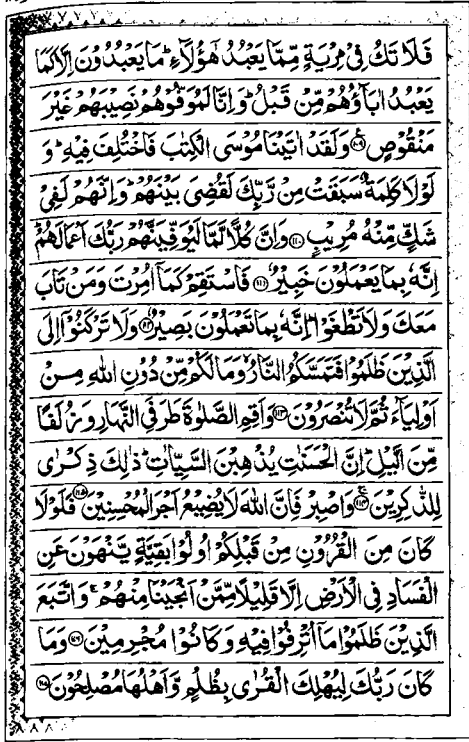 فَلَا تَكُ فِىْ مِرْيَةٍ مِّمَّا يَعْبُدُ هٰٓؤُلَآءِ ؕ مَا يَعْبُدُوْنَ اِلَّا كَمَا
يَعْبُدُ اٰبَآؤُهُمْ مِّنْ قَبْلُ ؕ وَاِنَّا لَمُوَفُّوْهُمْ نَصِيْبَهُمْ غَيْرَ
مَنْقُوْصٍ ﴿۱۰۹﴾ وَلَقَدْ اٰتَيْنَا مُوْسَى الْكِتٰبَ فَاخْتُلِفَ فِيْهِ ؕ وَ
لَوْلَا كَلِمَةٌ سَبَقَتْ مِنْ رَّبِّكَ لَقُضِىَ بَيْنَهُمْ ؕ وَاِنَّهُمْ لَفِىْ
شَكٍّ مِّنْهُ مُرِيْبٍ ﴿۱۱۰﴾ وَاِنَّ كُلًّا لَّمَّا لَيُوَفِّيَنَّهُمْ رَبُّكَ اَعْمَالَهُمْ ؕ
اِنَّهٗ بِمَا يَعْمَلُوْنَ خَبِيْرٌ ﴿۱۱۱﴾ فَاسْتَقِمْ كَمَآ اُمِرْتَ وَمَنْ تَابَ
مَعَكَ وَلَا تَطْغَوْا ؕ اِنَّهٗ بِمَا تَعْمَلُوْنَ بَصِيْرٌ ﴿۱۱۲﴾ وَلَا تَرْكَنُوْٓا اِلَى
الَّذِيْنَ ظَلَمُوْا فَتَمَسَّكُمُ النَّارُ ۙ وَمَا لَكُمْ مِّنْ دُوْنِ اللّٰهِ مِنْ
اَوْلِيَآءَ ثُمَّ لَا تُنْصَرُوْنَ ﴿۱۱۳﴾ وَاَقِمِ الصَّلٰوةَ طَرَفَىِ النَّهَارِ وَزُلَفًا
مِّنَ الَّيْلِ ؕ اِنَّ الْحَسَنٰتِ يُذْهِبْنَ السَّيِّاٰتِ ؕ ذٰلِكَ ذِكْرٰى
لِلذّٰكِرِيْنَ ﴿۱۱۴﴾ وَاصْبِرْ فَاِنَّ اللّٰهَ لَا يُضِيْعُ اَجْرَ الْمُحْسِنِيْنَ ﴿۱۱۵﴾ فَلَوْلَا
كَانَ مِنَ الْقُرُوْنِ مِنْ قَبْلِكُمْ اُولُوْا بَقِيَّةٍ يَّنْهَوْنَ عَنِ
الْفَسَادِ فِى الْاَرْضِ اِلَّا قَلِيْلًا مِّمَّنْ اَنْجَيْنَا مِنْهُمْ ۚ وَاتَّبَعَ
الَّذِيْنَ ظَلَمُوْا مَآ اُتْرِفُوْا فِيْهِ وَكَانُوْا مُجْرِمِيْنَ ﴿۱۱۶﴾ وَمَا
كَانَ رَبُّكَ لِيُهْلِكَ الْقُرٰى بِظُلْمٍ وَّاَهْلُهَا مُصْلِحُوْنَ ﴿۱۱۷﴾